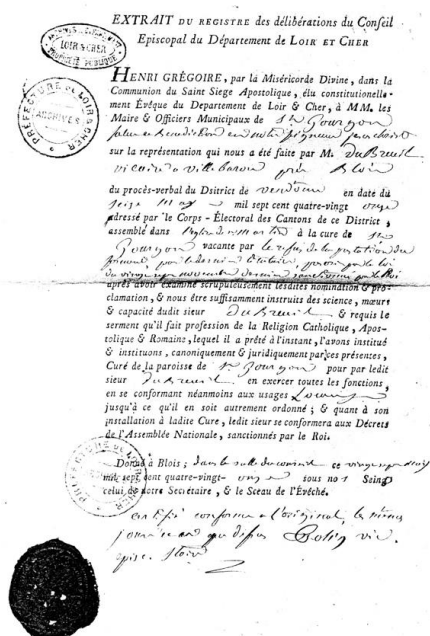 EXTRAIT DU REGISTRE des délibérations du Conseil
Episcopal du Département de LOIR ET CHER
LOIR & CHER
PROPRIÉTÉ PUBLIQUE
PRÉFECTURE DE LOIR & CHER
ARCHIVES
HENRI GRÉGOIRE, par la Miséricorde Divine, dans la
Communion du Saint Siege Apostolique, élu constitutionelle-
ment Évêque du Departement de Loir & Cher, à MM. les
Maire & Officiers Municipaux de St Gourgon
salut et Benediction en notre seigneur jesus christ
sur la représentation qui nous a été faite par M. duBreuil
vicaire à villebarou près Blois
du procès-verbal du Dsitrict de vendôme en date du
seize may mil sept cent quatre-vingt onze
adressé par le Corps-Électoral des Cantons de ce District,
assemblé dans l'église de à la cure de St
Gourgon vacante par le refus de la prestation du
serment par le dernier titulaire, par la loi
du vingt sept novembre dernier sanctionnée par le Roi
après avoir examiné scrupuleusement lesdites nomination & pro-
clamation, & nous être suffisamment instruits des science, mœurs
& capacité dudit sieur duBreuil & requis le
serment qu'il fait profession de la Religion Catholique, Apos-
tolique & Romaine, lequel il a prêté à l'instant, l'avons institué
& instituons, canoniquement & juridiquement par ces présentes,
Curé de la paroisse de St Gourgon pour par ledit
sieur duBreuil en exercer toutes les fonctions,
en se conformant néanmoins aux usages
jusqu'à ce qu'il en soit autrement ordonné ; & quant à son
installation à ladite Cure, ledit sieur se conformera aux Décrets
de l'Assemblée Nationale, sanctionnés par le Roi.
Donné à Blois ; dans la salle du conseil ce vingt
mil sept cent quatre-vingt- onze sous nos Seing
celui de notre Secrétaire, & le Sceau de l'Évêché.
PRÉFECTURE DE LOIR & CHER
conforme à l'original, les mêmes
jour et an que dessus vic.